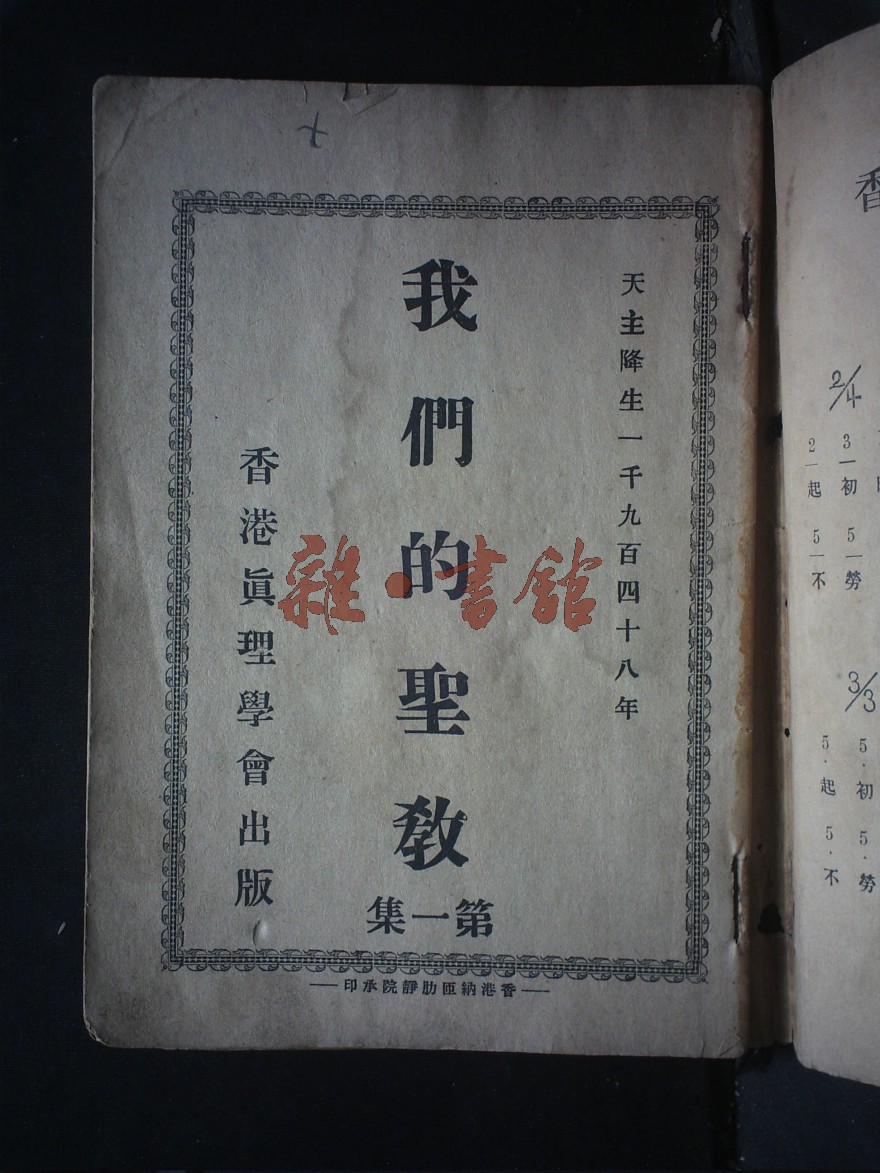 天主降生一千九百四十八年
我們的聖敎
第一集
香港眞理學會出版
香港納匝肋靜院承印
雜·書館
香
2/4
3 初 5 勞
2 起 5 不
3/3
5·初 5·勞
5·起 5·不